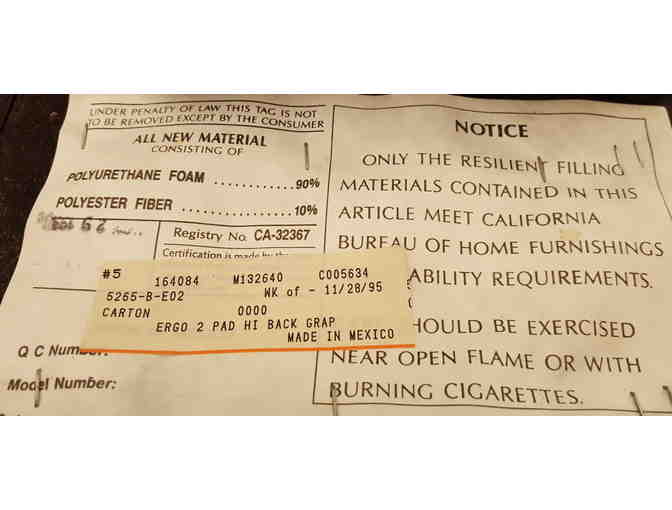 UNDER PENALTY OF LAW THIS TAG IS NOT
TO BE REMOVED EXCEPT BY THE CONSUMER
ALL NEW MATERIAL
CONSISTING OF
POLYURETHANE FOAM ............ 90%
POLYESTER FIBER ................. 10%
Registry No. CA-32367
Certification is made by the
#5 164084 M132640 C005634
6265-B-E02 WK of - 11/28/95
CARTON 0000
ERGO 2 PAD HI BACK GRAP
MADE IN MEXICO
Q C Num
Model Number:
NOTICE
ONLY THE RESILIENT FILLING
MATERIALS CONTAINED IN THIS
ARTICLE MEET CALIFORNIA
BUREAU OF HOME FURNISHINGS
ABILITY REQUIREMENTS.
HOULD BE EXERCISED
NEAR OPEN FLAME OR WITH
BURNING CIGARETTES.